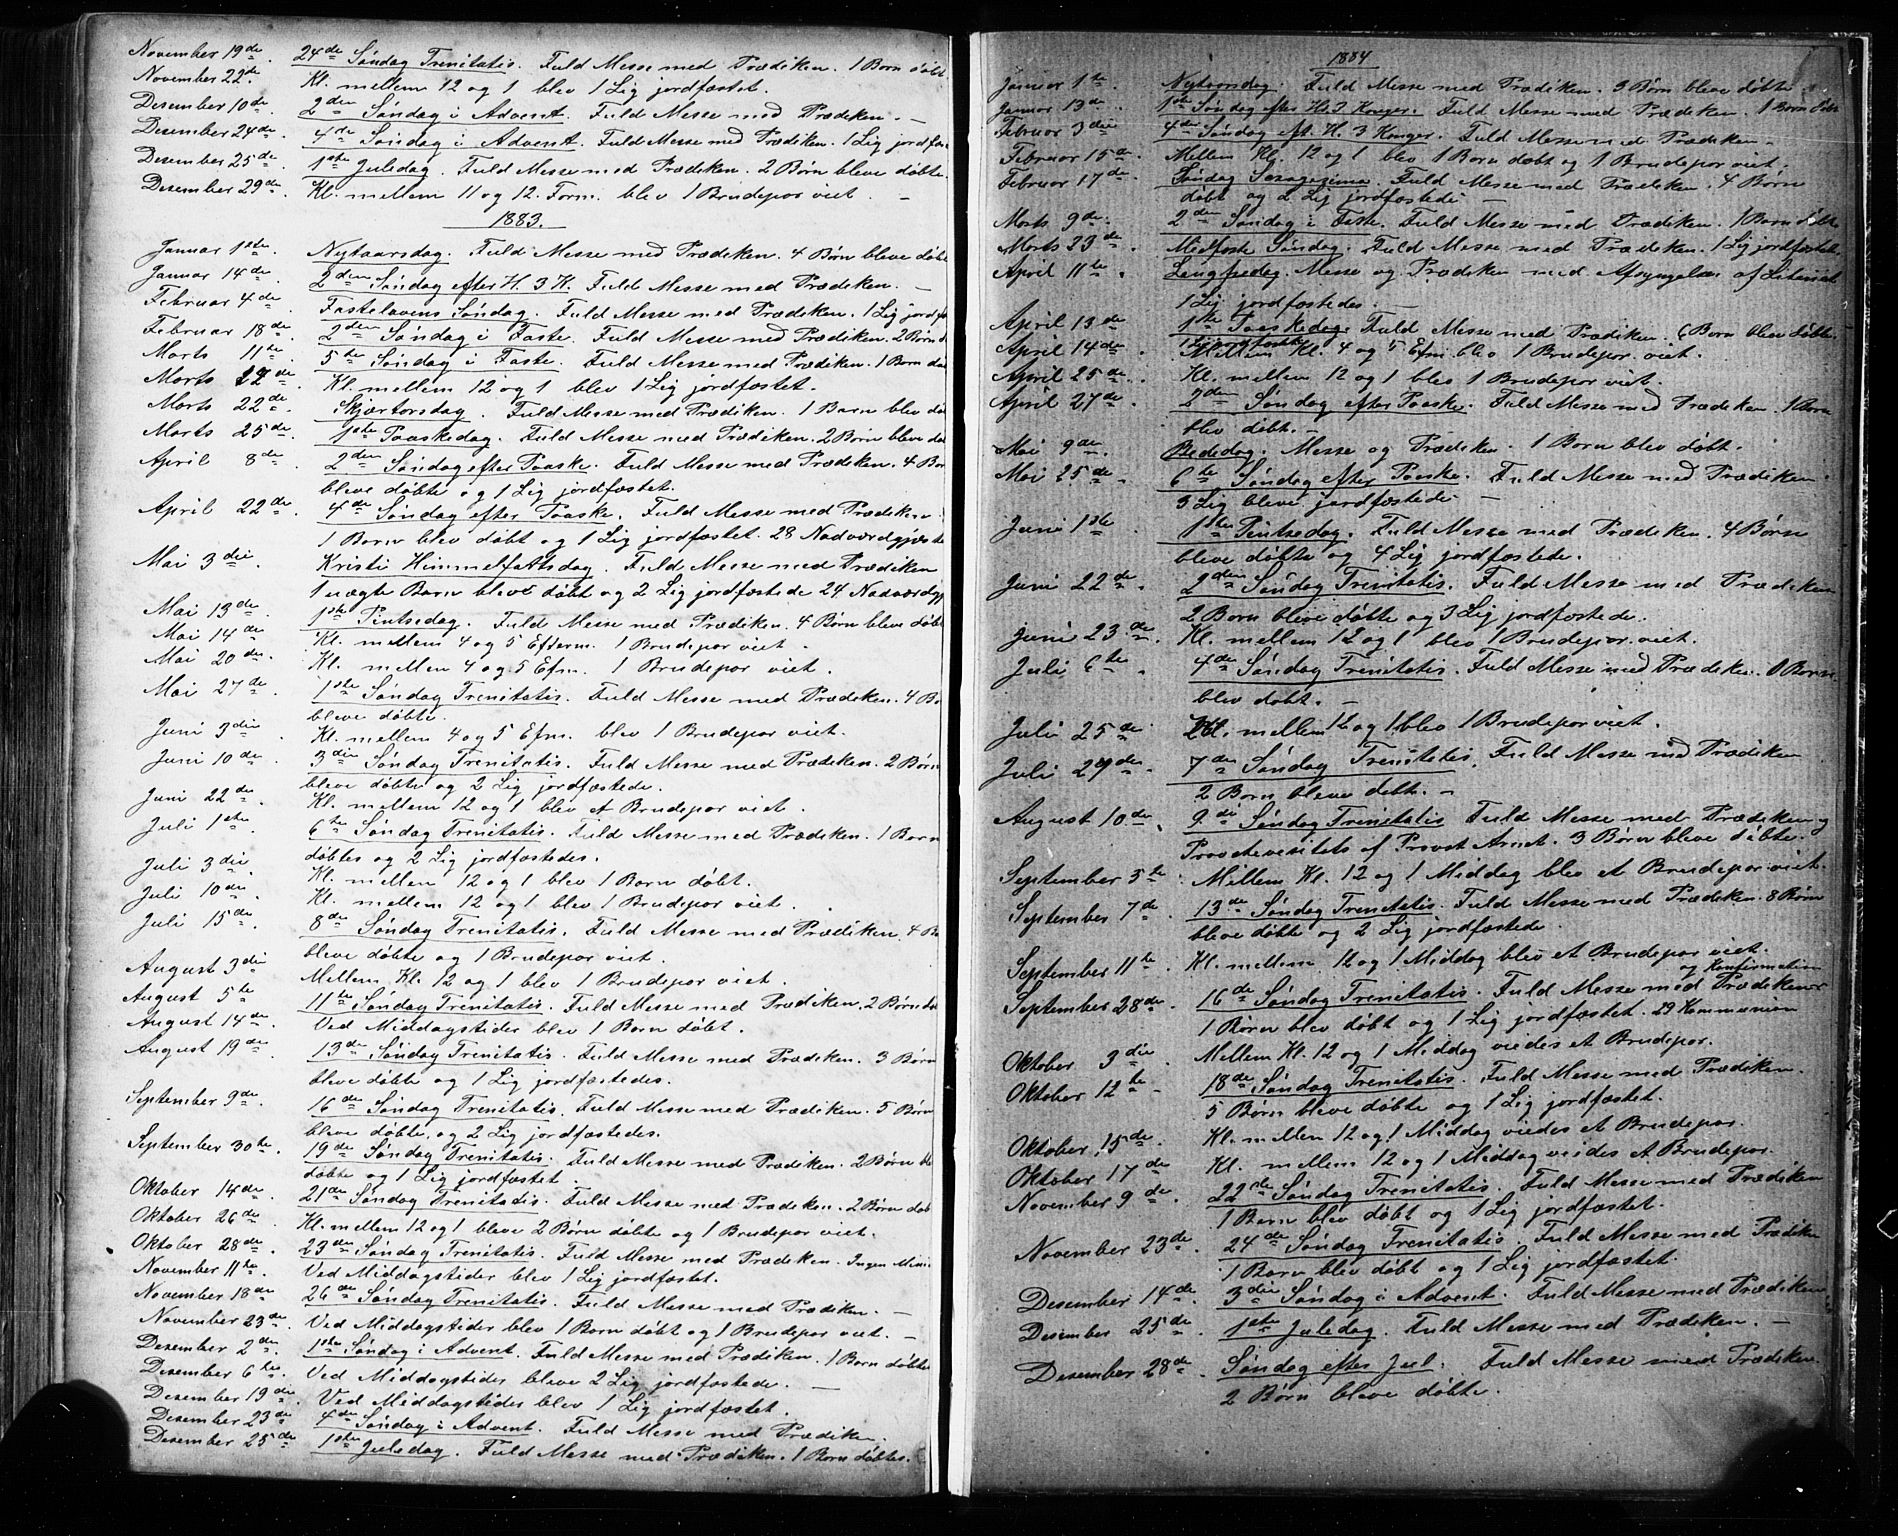 November 19de. 24de Søndag Trenitatis. Fuld Messe med Prædiken. 1 Barn døbt
November 22de. Kl. mellem 12 og 1 blev 1 Lig jordfæstet.
Desember 10de. 2den Søndag i Advent. Fuld Messe med Prædeken. -
Desember 24de. 4de Søndag i Advent. Fuld Messe med Prædiken. 1 Lig jordfæs
Desember 25de. 1ste Juledag. Fuld Messe med Prædiken. 2 Børn bleve døbte.
Desember 29de. Kl. mellem 11 og 12. Form. blev 1 Brudepar viet. -
1883.
Januar 1ste. Nytaarsdag. Fuld Messe med Prædiken. 4 Børn bleve døbte
Januar 14de. 2den Søndag efter H. 3 K. Fuld Messe med Prædiken. -
Februar 4de. Fastelavens Søndag. Fuld Messe med Prædiken. 1 Lig jordfæ
Februar 18de. 2den Søndag i Faste. Fuld Messe med Prædiken. 2 Børn
Marts 11te. 5te Søndag i Faste. Fuld Messe med Prædiken. 1 Barn
Marts de. Kl. mellem 12 og 1 blev 1 Lig jordfæstet.
Marts 22de. Skjærtorsdag. Fuld Messe med Prædiken. 1 Barn blev dø
Marts 25de. 1ste Paaskedag. Fuld Messe med Prædiken. 2 Børn bleve dø
April 8de. 2den Søndag efter Paaske. Fuld Messe med Prædiken. 4 Bør
bleve døbte og 1 Lig jordfæstet.
April 22de. 4de Søndag efter Paaske. Fuld Messe med Prædiken.
1 Barn blev døbt og 1 Lig jordfæstet. 28 Nadværdgjæste
Mai 3die. Kristi Himmelfartsdag. Fuld Messe med Prædiken
1 uægte Barn bleve døbt og 2 Lig jordfæstede 24 Nadværdgj
Mai 13de. 1ste Pintsedag. Fuld Messe med Prædiken. 4 Børn bleve døbt
Mai 14de. Kl. mellem 4 og 5 Efterm. 1 Brudepar viet.
Mai 20de. Kl. mellem 4 og 5 Efm. 1 Brudepar viet.
Mai 27de. 1ste Søndag Trenitatis. Fuld Messe med Prædiken. 4 Bø
bleve døbte.
Juni 3die. Kl. mellem 4 og 5 Efm. blev 1 Brudepar viet.
Juni 10de. 3die Søndag Trenitatis. Fuld Messe med Prædiken. 2 Børn
bleve døbte og 2 Lig jordfæstede.
Juni 22de. Kl. mellem 12 og 1 blev et Brudepar viet.
Juli 1ste. 6te Søndag Trenitatis. Fuld Messe med Prædiken. 1 Barn
døbtes og 2 Lig jordfæstedes.
Juli 3die. Kl. mellem 12 og 1 blev 1 Barn døbt.
Juli 10de. Kl. mellem 12 og 1 blev 1 Brudepar viet.
Juli 15de. 8de Søndag Trenitatis. Fuld Messe med Prædiken. 4 B
bleve døbte og 1 Brudepar viet.
August 3die Mellem Kl. 12 og 1 blev 1 Brudepar viet.
August 5te. 11te Søndag Trenitatis. Fuld Messe med Prædiken. 2 Børn dø
August 14de. Ved Middagstider blev 1 Barn døbt.
August 19de. 13de Søndag Trenitatis. Fuld Messe med Prædiken. 3 Børn
bleve døbte og 1 Lig jordfæstedes.
September 9de. 16de Søndag Trenitatis. Fuld Messe med Prædiken. 5 Børn
bleve døbte, og 2 Lig jordfæstedes.
September 30te. 19de Søndag Trenitatis. Fuld Messe med Prædiken. 2 Børn ble
døbte og 1 Lig jordfæstet.
Oktober 14de. 21de Søndag Trenitatis. Fuld Messe med Prædeken. 2 Børn døb
Oktober 26de. Kl. mellem 12 og 1 bleve 2 Børn døbte og 1 Brudepar viet.
Oktober 28de. 23de Søndag Trenitatis. Fuld Messe med Prædeken. Ingen Mini
November 11te. Ved Middagstider blev 1 Lig jordfæstet.
November 18de. 26de Søndag Trenitatis. Fuld Messe med Prædiken. -
November 23de. Ved Middagstider blev 1 Barn døbt og 1 Brudepar viet. -
Desember 2de. 1ste Søndag i Advent. Fuld Messe med Prædiken. 1 Barn døbte
Desember 6te. Ved Middagstider bleve 2 Lig jordfæstede. -
Desember 19de. Ved Middagstider blev 1 Lig jordfæstet.
Desember 23de 4de Søndag i Advent. Fuld Messe med Prædiken.
Desember 25de 1ste Juledag. Fuld Messe med Prædiken. 1 Barn døbtes.
1884
Januar 1ste. Nytaarsdag. Fuld Messe med Prædiken. 3 Børn bleve døbte
Januar 13de 1ste Søndag efter H. 3 Konger. Fuld Messe med Prædeken. 1 Barn døbt
Februar 3die 4de Søndag eft. H. 3 Konger. Fuld Messe med Prædiken.
Februar 15de. Mellem Kl. 12 og 1 blev 1 Barn døbt og 1 Brudepar viet.
Februar 17de. Søndag Sexagesima. Fuld Messe med Prædeken. 4 Børn
døbt og 2 Lig jordfæstede -
Marts 9de. 2den Søndag i Faste. Fuld Messe med Prædiken. 1 Barn døbt
Marts 23de. Midfaste Søndag. Fuld Messe med Prædiken. 1 Lig jordfæstet.
April 11te. Langfredag. Messe og Prædeken med Afsyngelse af Litaniet
1 Lig jordfæstedes. -
April 13de 1ste Paaskedag. Fuld Messe med Prædiken. 6 Børn blev døbte.
1 Lig jordfæstet
April 14de. Mellem Kl. 4 og 5 Efm. blev 1 Brudepar viet.
April 25de. Kl. mellem 12 og 1 blev 1 Brudepar viet.
April 27de. 2den Søndag efter Paaske. Fuld Messe med Prædiken. 1 Barn
blev døbt. -
Mai 9de. Bededag. Messe og Prædiken. 1 Barn blev døbt.
Mai 25de. 6te Søndag efter Paaske. Fuld Messe med Prædiken.
3 Lig bleve jordfæstede -
Juni 1ste. 1ste Pintsedag. Fuld Messe med Prædiken. 4 Børn
bleve døbte og 4 Lig jordfæstede.
Juni 22de. 2den Søndag Trenitatis. Fuld Messe med Prædiken
2 Børn bleve døbte og 3 Lig jordfæstede.
Juni 23de. Kl. mellem 12 og 1 blev 1 Brudepar viet.
Juli 6te. 4de Søndag Trenitatis. Fuld Messe med Prædiken. 1 Barn
blev døbt. -
Juli 25de Kl. mellem 12 og 1 blev 1 Brudepar viet.
Juli 29de. 7de Søndag Trenitatis. Fuld Messe med Prædiken
2 Børn bleve døbt. -
August 10de. 9de Søndag Trenitatis Fuld Messe med Prædeken og
Provstevisitats af Provst Arnet. 3 Børn bleve døbte.
September 5te. Mellem Kl. 12 og 1 Middag blev et Brudepar viet.
September 7de. 13de Søndag Trenitatis. Fuld Messe med Prædeken. 8 Børn
bleve døbte og 2 Lig jordfæstede.
September 11te. Kl. mellem 12 og 1 Middag blev et Brudepar viet.
og Konfirmation
September 28de. 16de Søndag Trenitatis. Fuld Messe med Prædiken
1 Børn blev døbt og 1 Lig jordfæstet. 29 Kommunion
Oktober 3die Mellem Kl. 12 og 1 Middag viedes et Brudepar.
Oktober 12te - 18de Søndag Trenitatis. Fuld Messe med Prædiken.
5 Børn bleve døbte og 1 Lig jordfæstet.
Oktober 15de. Kl. mellem 12 og 1 Middag viedes et Brudepar.
Oktober 17de Kl. mellem 12 og 1 Middag viedes et Brudepar.
November 9de. 22de Søndag Trenitatis. Fuld Messe med Prædiken
1 Barn blev døbt og 1 Lig jordfæstet.
November 23de. 24de Søndag Trenitatis. Fuld Messe med Prædiken
1 Barn blev døbt og 1 Lig jordfæstet.
Desember 14de. 3die Søndag i Advent. Fuld Messe med Prædiken
Desember 25de. 1ste Juledag. Fuld Messe med Prædeken. -
Desember 28de. Søndag efter Jul. Fuld Messe med Prædiken.
2 Børn bleve døbte.